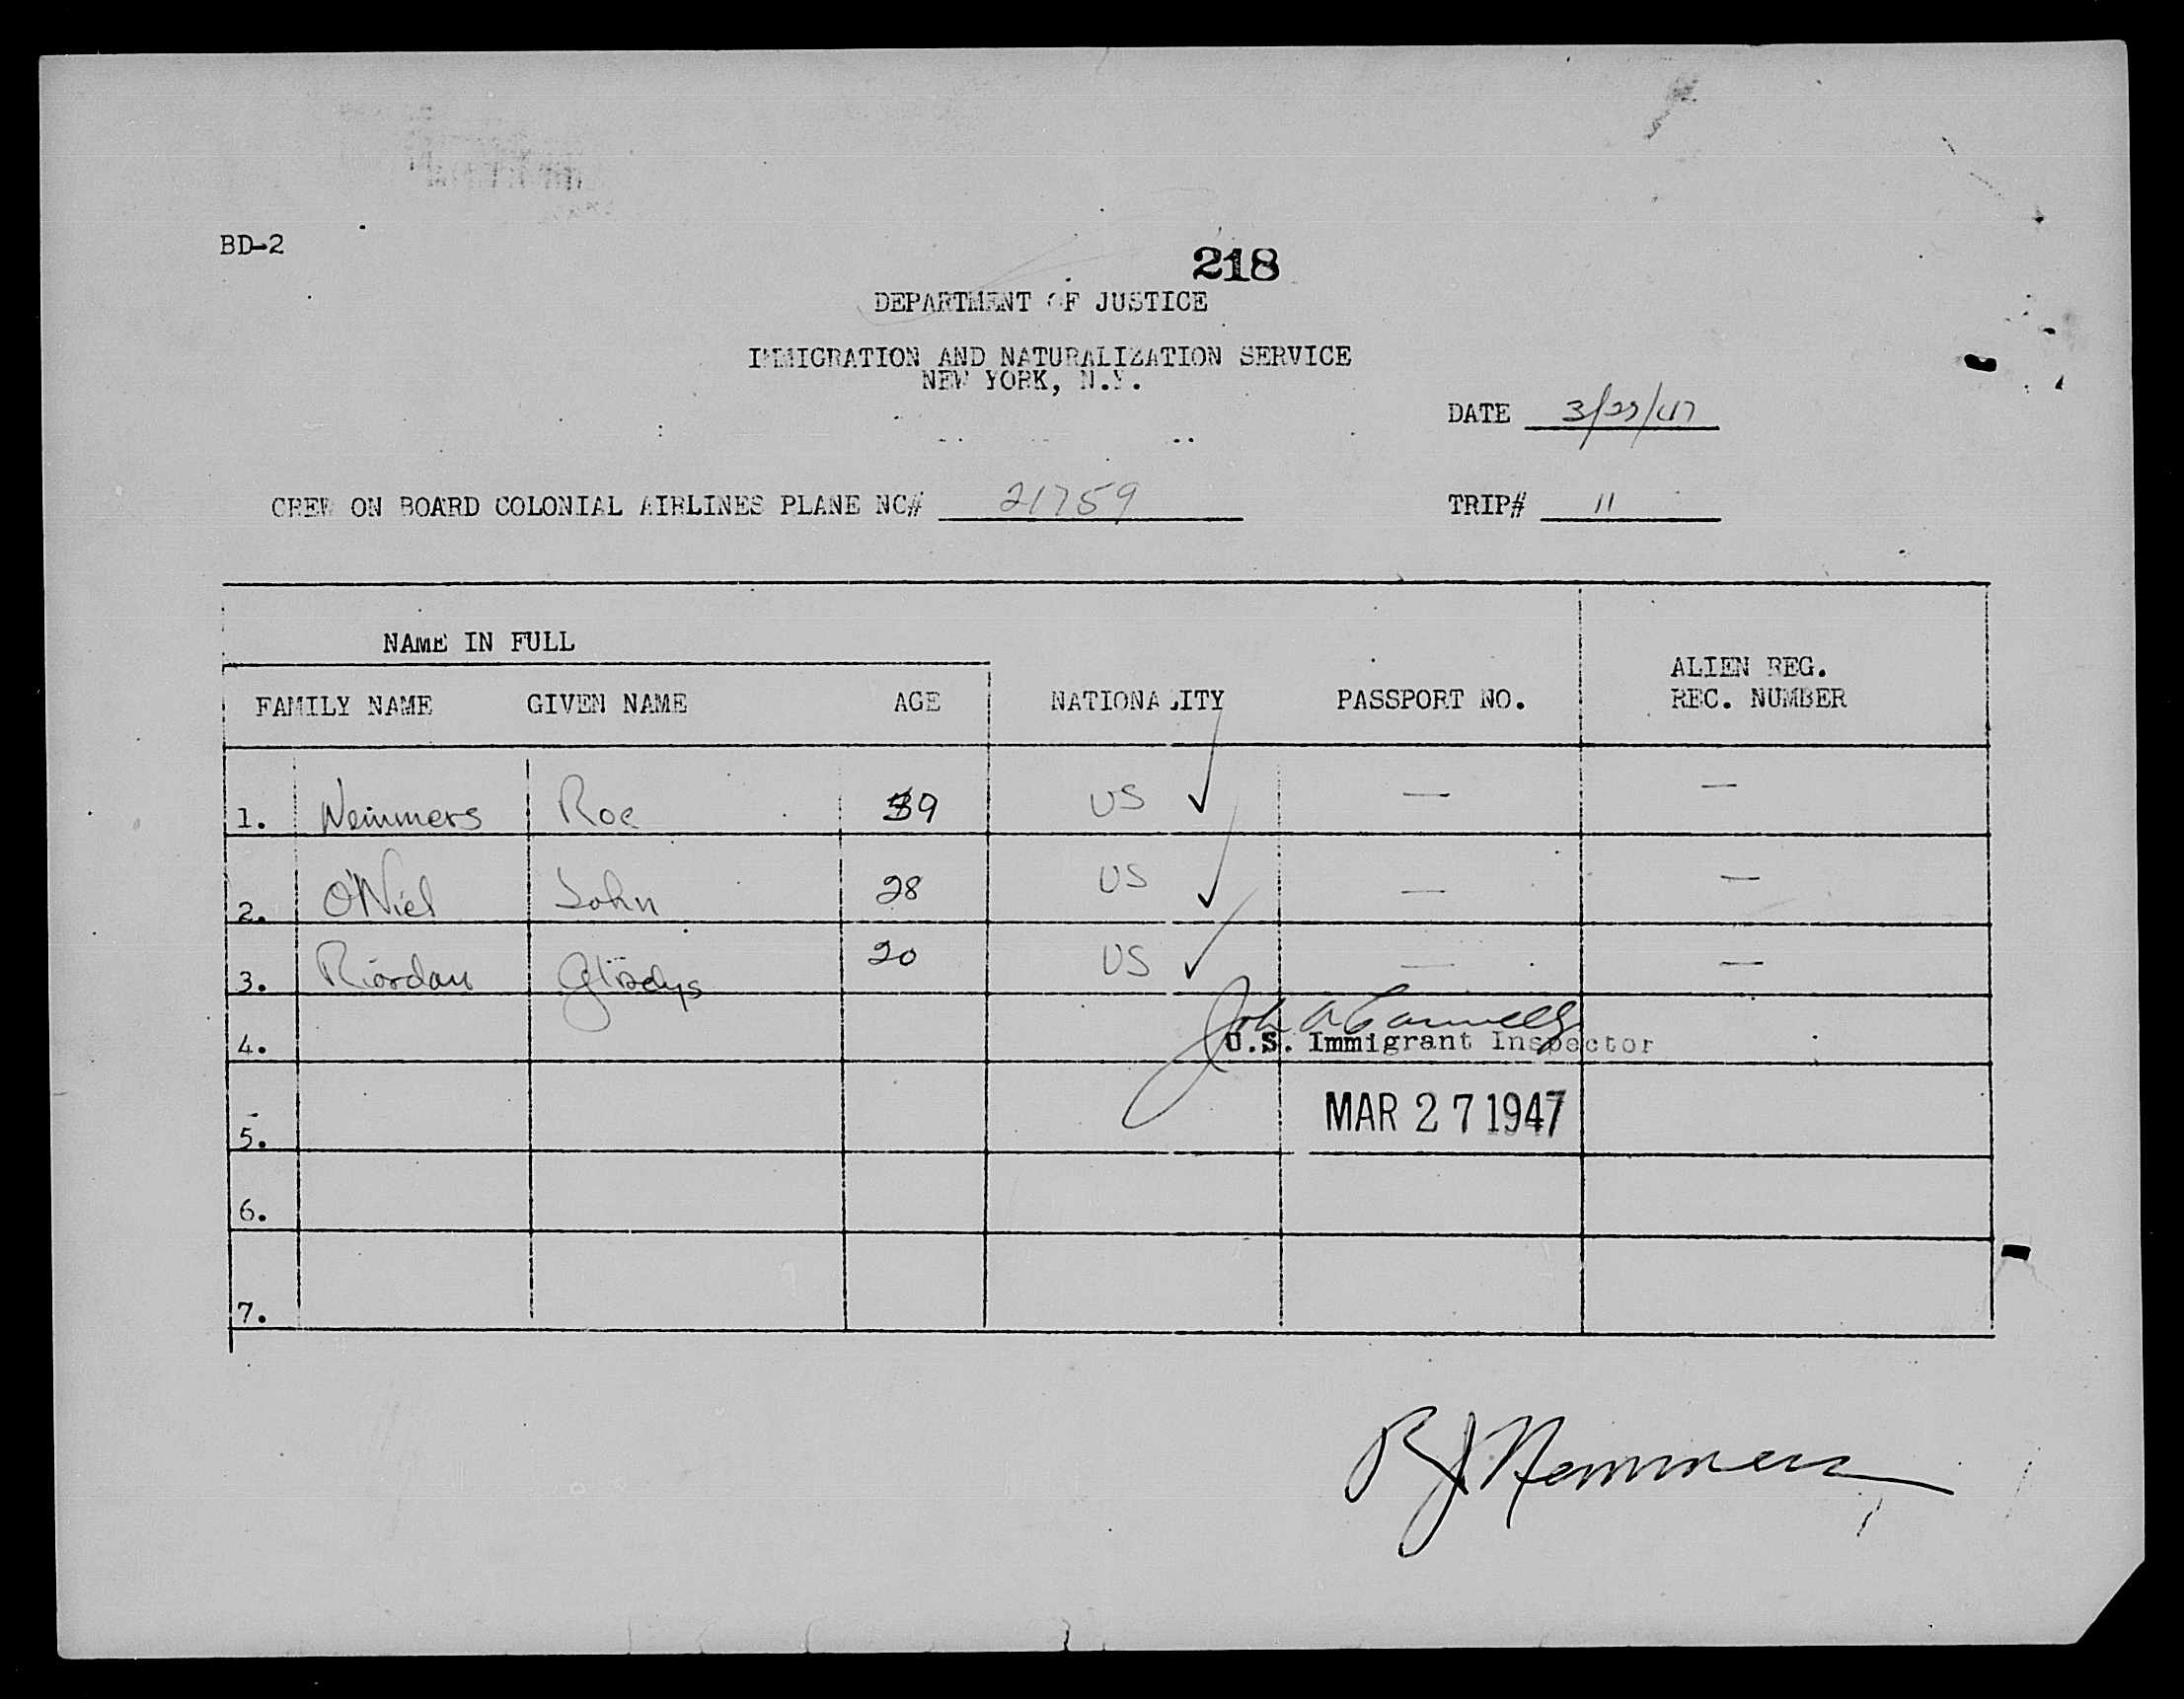 BD-2
218
DEPARTMENT OF JUSTICE
IMMIGRATION AND NATURALIZATION SERVICE
NEW YORK, N.Y.
DATE 3/27/47
CREW ON BOARD COLONIAL AIRLINES PLANE NC# 21759 TRIP# 11
NAME IN FULL
ALIEN REG.
FAMILY NAME GIVEN NAME AGE NATIONALITY PASSPORT NO. REC. NUMBER
1. Nemmers Roe 39 US ✓ — —
2. O'Niel John 28 US ✓ — —
3. Riordan Gladys 20 US ✓ — —
John A
4. U.S. Immigrant Inspector
5. MAR 27 1947
6.
7.
R J Nemmers